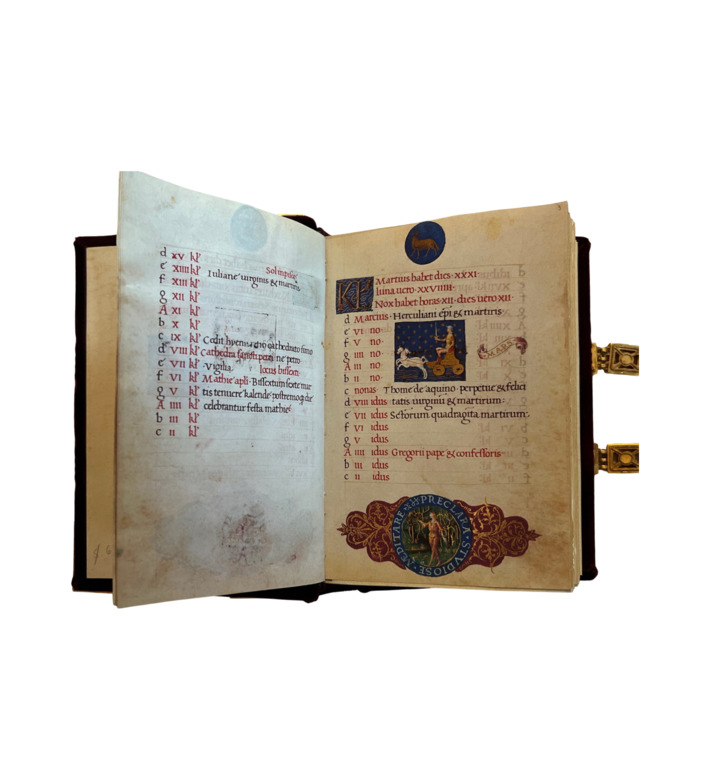 d xv kl'
e xiiii kl' Sol in pisce
f xiii kl' Iuliane uirginis & martiris
g xii kl'
A xi kl'
b x kl'
c ix kl' Cedit hyems
d viii kl' Cathedra sancti petri
e vii kl' Vigilia. locus bissexti
f vi kl' Mathie apli. Bissextum
g v kl' tis tenuere kalende postremo
A iiii kl' celebrantur festa mathie
b iii kl'
c ii kl'
KL Martius habet dies. xxxi.
luna uero. xxviiii.
Nox habet horas. xii. dies uero xii.
d Marcius. Herculiani epi & martiris
e vi no.
f v no.
g iiii no.
A iii no. MARS
b ii no.
c nonas. Thome de aquino. perpetue & felici
d viii idus tatis uirginum & martirum.
e vii idus Sctorum quadragita martirum.
f vi idus
g v idus
A iiii idus Gregorii pape & confessoris
b iii idus
c ii idus
PRECLARA STVDIOSE MEDITARE